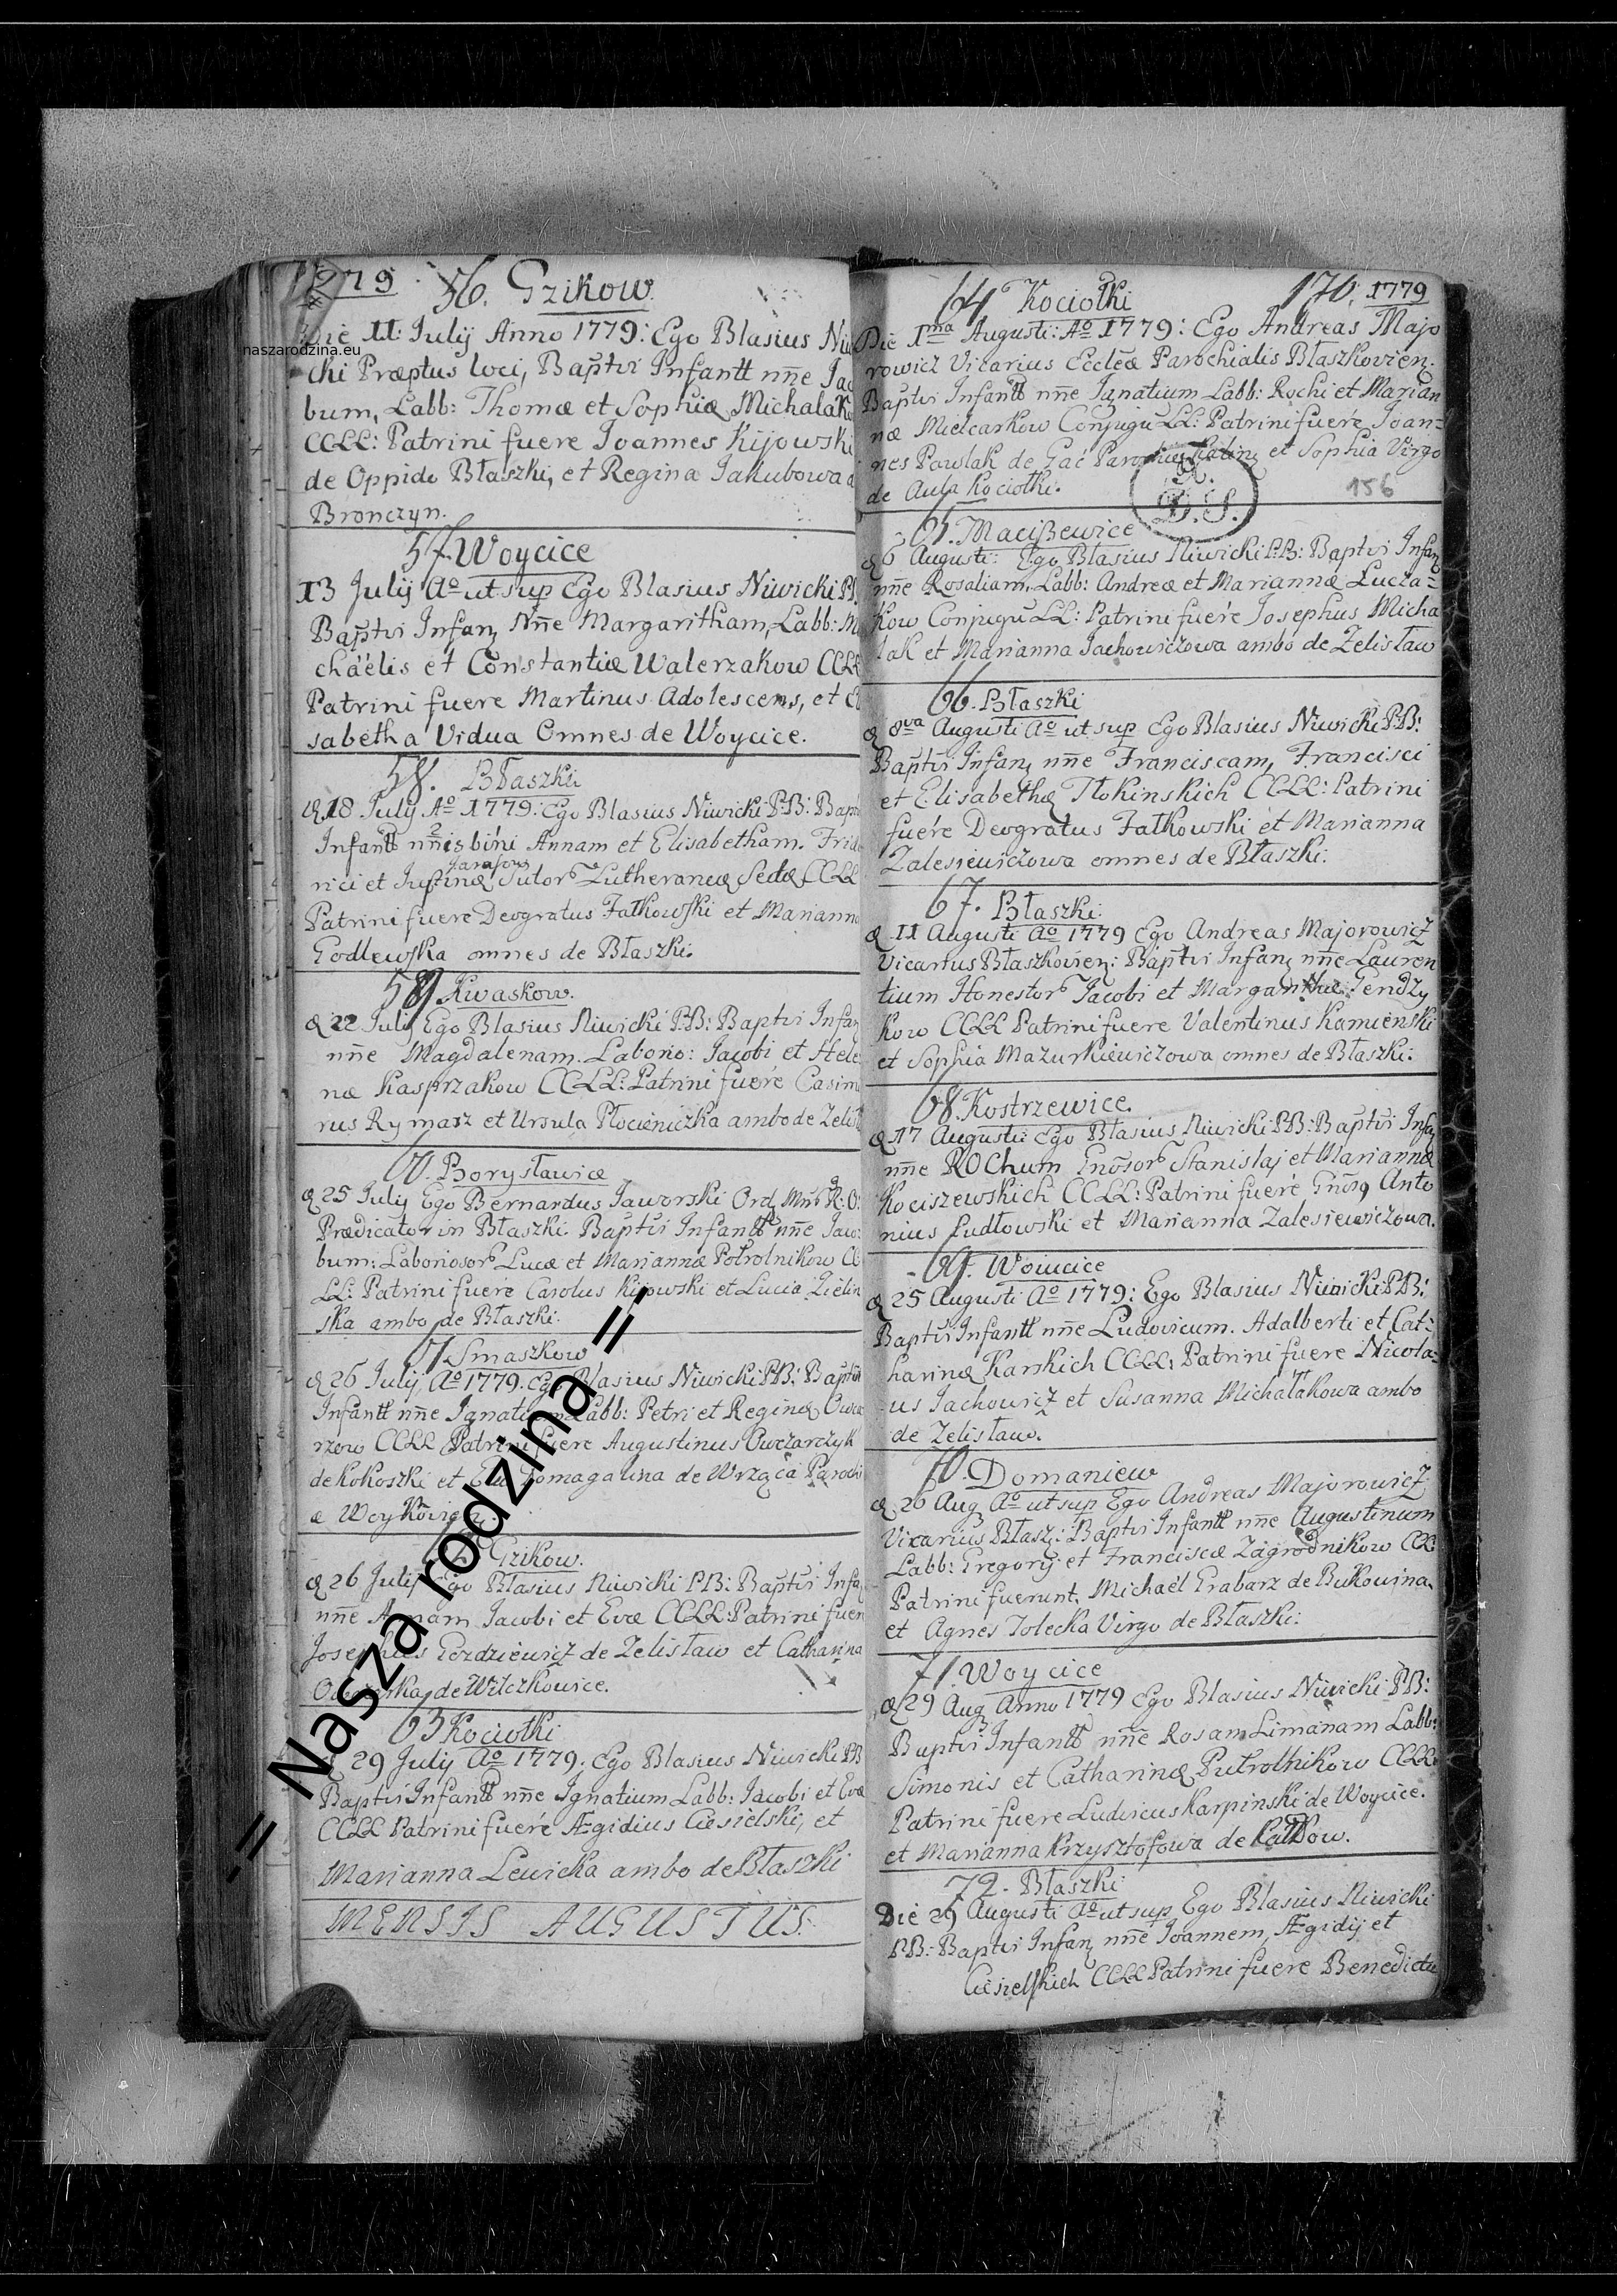 1779
56. Gzikow
Die 11 July Anno 1779: Ego Blasius Niwi
cki Præptus loci, Baptvi Infantt nñe Jac
bum, Labb: Thomæ et Sophiæ Michalak
CCLL: Patrini fuere Joannes Kijowski
de Oppido Błaszki, et Regina Jakubowa d
Bronczyn.
57 Woycice
13 July Ao ut sup Ego Blasius Niwicki P
Baptvi Infan nñe Margaritham, Labb: M
chäélis et Constantiæ Walerzakow CCLL
Patrini fuere Martinus Adolescens, et E
sabetha Vidua Omnes de Woycice.
58. Błaszki
18 July Ao 1779: Ego Blasius Niwicki PB: Bapt
Infantt nñis 2 bini Annam et Elisabetham. Fride
rici et Justinæ Sutor Lutheranæ Sectæ CCLL
Patrini fuere Deogratus Fałkowski et Marianna
Godlewska omnes de Błaszki.
59 Kwaskow.
22 July Ego Blasius Niwicki PB: Baptvi Infan
nñe Magdalenam. Laborio: Jacobi et Hele
næ Kasprzakow CCLL: Patrini fuere Casim
rus Rymasz et Ursula Płocieniczka ambo de Zelist
60. Borysławice
25 July Ego Bernardus Jaworski Ord
Prædicator in Błaszki. Baptvi Infantt nñe Jaco
bum: Laboriosor Lucæ et Mariannæ Potrolnikow C
LL: Patrini fuere Carolus Kijowski et Lucia Zielin
ska ambo de Błaszki.
61 Smaszkow
26 July, Ao 1779. Ego Blasius Niwicki PB: Baptvi
Infantt nñe Ignatium Labb: Petri et Reginæ Owcza
rzow CCLL Patrini fuere Augustinus Owczarczyk
de Kokoszki et Eva Domagalina de Wrząca Parochi
æ Woykovien.
62 Gzikow.
26 July Ego Blasius Niwicki PB: Baptvi Infan
nñe Annam Jacobi et Evæ CCLL: Patrini fuer
Josephus Gozdziewicz de Zelisław et Catharina
de Wilczkowice.
63 Kociołki
29 July Ao 1779. Ego Blasius Niwicki PB
Baptvi Infantt nñe Ignatium Labb: Jacobi et Evæ
CCLL Patrini fuere Ægidius Ciesielski, et
Marianna Lewicka ambo de Błaszki
MENSIS AUGUSTUS.
64 Kociołki 170. 1779
Die 1ma Augusti: Ao 1779: Ego Andreas Majo
rowicz Vicarius Eccleæ Parochialis Błaszkovien:
Baptvi Infantt nñe Ignatium Labb: Rochi et Marian
næ Mielcarkow Conjugu LL: Patrini fuere Joan=
nes Pawlak de Gać et Sophia Virgo
de Aula Kociołki.
156
65. Macißewice
6 Augusti: Ego Blasius Niwicki PB: Baptvi Infan
nñe Rosaliam, Labb: Andreæ et Mariannæ Lucza=
kow Conjugu LL: Patrini fuere Josephus Micha
lak et Marianna Jachowiczowa ambo de Zelisław
66. Błaszki
8va Augusti Ao ut sup Ego Blasius Niwicki PB:
Baptvi Infan nñe Franciscam, Francisci
et Elisabethæ Tłokinskich CCLL: Patrini
fuere Deogratus Fałkowski et Marianna
Zalesiewiczowa omnes de Błaszki.
67. Błaszki.
11 Augusti Ao 1779 Ego Andreas Majorowicz
Vicarius Błaszkovien: Baptvi Infan nñe Lauren
tium Honestor Jacobi et Margarithæ Gendzy
kow CCLL Patrini fuere Valentinus Kamienski
et Sophia Mazurkiewiczowa omnes de Błaszki.
68. Kostrzewice.
17 Augusti Ego Blasius Niwicki PB: Baptvi Infan
nñe ROChum Gnõsor Stanislaj et Mariannæ
Kociszewskich CCLL: Patrini fuere Gnõsq Anto
nius Ludłowski et Marianna Zalesiewiczowa.
69. Woiucice
25 Augusti Ao 1779: Ego Blasius Niwicki PB:
Baptvi Infantt nñe Ludovicum. Adalberti et Cat=
harinæ Karskich CCLL: Patrini fuere Nicola=
us Jachowicz et Susanna Michalakowa ambo
de Zelisław.
70. Domaniew
26 Aug Ao ut sup Ego Andreas Majorowicz
Vicarius Błasz: Baptvi Infantt nñe Augustinum
Labb: Gregorij et Franciscæ Zagrodnikow CCLL
Patrini fuerunt, Michaël Grabarz de Bukowina
et Agnes Tolecka Virgo de Błaszki:
71. Woycice
29 Aug Anno 1779 Ego Blasius Niwicki PB:
Baptvi Infantt nñe Rosam Limanam Labb:
Simonis et Catharinæ Putrolnikow CCLL
Patrini fuere Ludvicus Karpinski de Woycice.
et Marianna Krzysztofowa de
72. Błaszki
Die 29 Augusti Ao ut sup Ego Blasius Niwicki
PB: Baptvi Infan nñe Joannem, Ægidij et
Ciesielskich CCLL Patrini fuere Benedictu
naszarodzina.eu
-= Nasza rodzina =-